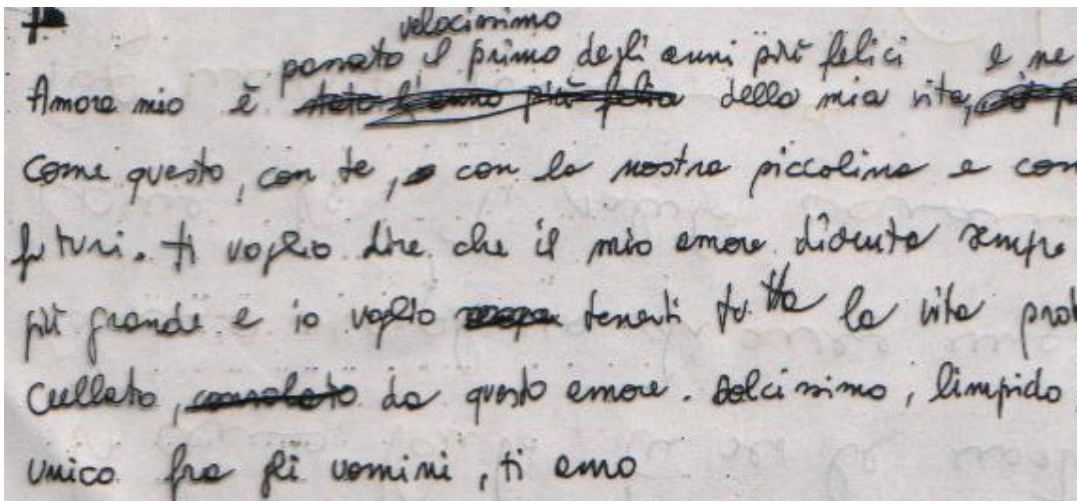 velocissimo
passato il primo degli anni più felici e ne
Amore mio è della mia vita,
come questo, con te, con la nostra piccolina e con
futuri. ti voglio dire che il mio amore diventa sempre
più grande e io voglio tenerti tutta la vita
cullato, da questo amore. Dolcissimo, limpido
unico fra gli uomini, ti amo